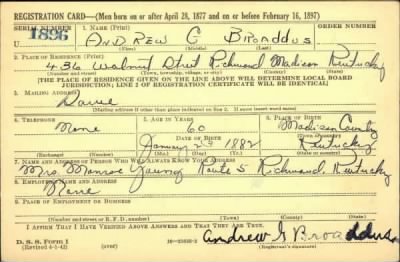 REGISTRATION CARD—(Men born on or after April 28, 1877 and on or before February 16, 1897)
SERIAL NUMBER 1. NAME (Print) ORDER NUMBER
U 1896 ANDREW G BROADDUS
(First) (Middle) (Last)
2. PLACE OF RESIDENCE (Print)
436 Walnut Street Richmond Madison Kentucky
(Number and street) (Town, township, village, or city) (County) (State)
[THE PLACE OF RESIDENCE GIVEN ON THE LINE ABOVE WILL DETERMINE LOCAL BOARD
JURISDICTION; LINE 2 OF REGISTRATION CERTIFICATE WILL BE IDENTICAL]
3. MAILING ADDRESS
Same
(Mailing address if other than place indicated on line 2. If same insert word same)
4. TELEPHONE 5. AGE IN YEARS 6. PLACE OF BIRTH
None 60 Madison County
DATE OF BIRTH (Town or county)
January 1882 Kentucky
(Exchange) (Number) (Mo.) (Day) (Yr.) (State or country)
7. NAME AND ADDRESS OF PERSON WHO WILL ALWAYS KNOW YOUR ADDRESS
Mrs. Monroe Young Route 5 Richmond, Kentucky
8. EMPLOYER'S NAME AND ADDRESS
None
9. PLACE OF EMPLOYMENT OR BUSINESS
(Number and street or R. F. D. number) (Town) (County) (State)
I AFFIRM THAT I HAVE VERIFIED ABOVE ANSWERS AND THAT THEY ARE TRUE.
D. S. S. Form 1
(Revised 4-1-42) (over) Andrew G Broaddus
(Registrant's signature)